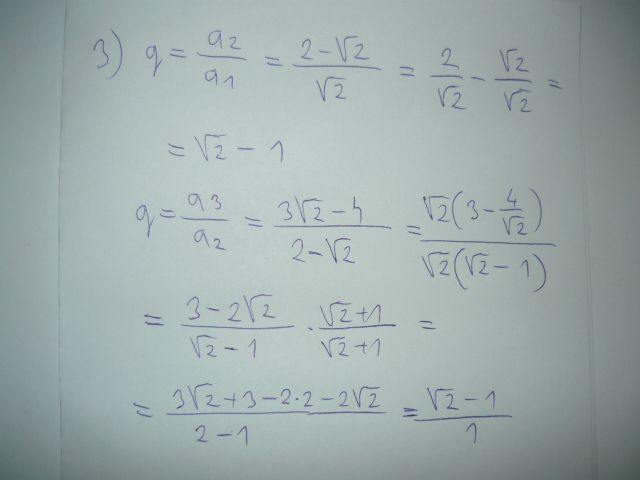 3) q = a₂/a₁ = (2 - √2)/√2 = 2/√2 - √2/√2 =
= √2 - 1
q = a₃/a₂ = (3√2 - 4)/(2 - √2) = √2(3 - 4/√2)/(√2(√2 - 1))
= (3 - 2√2)/(√2 - 1) · (√2 + 1)/(√2 + 1) =
= (3√2 + 3 - 2·2 - 2√2)/(2 - 1) = (√2 - 1)/1